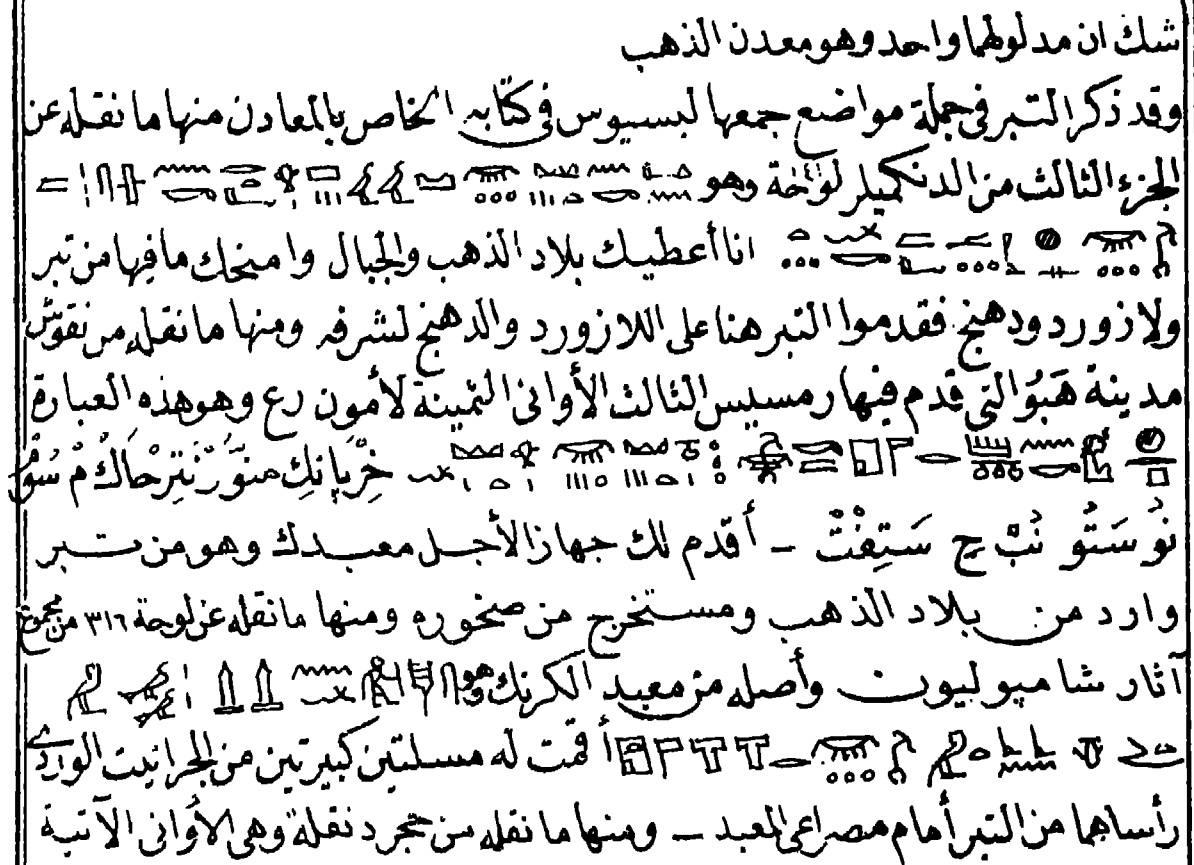 شك ان مدلولهما واحد وهو معدن الذهب
وقد ذكر التبر فى جملة مواضع جمعها لبسيوس فى كتابه الخاص بالمعادن منها ما نقله عن
الجزء الثالث من الدنكميلر لوحة وهو
انا أعطيك بلاد الذهب والجبال وا منحك ما فيها من تبر
ولازورد ودهنج فقدموا التبر هنا على اللازورد والدهنج لشرفه ومنها ما نقله من نقوش
مدينة هَبُو التى قدم فيها رمسيس الثالث الأوانى الثمينة لأمون رع وهو هذه العبارة
نُو سَتُو نُبْ سَتِفْتْ - أقدم لك جهازا لأجل معبدك وهو من تبر
وارد من بلاد الذهب ومستخرج من صخوره ومنها ما نقله عن لوحة ٣١٦ من مجموع
آثار شامپوليون وأصله من معبد الكرنك وهو
أقمت له مسلتين كبيرتين من الجرانيت الوردى
رأساهما من التبر أمام مصراعى المعبد - ومنها ما نقله من نقلة وهى الأوانى الآتية